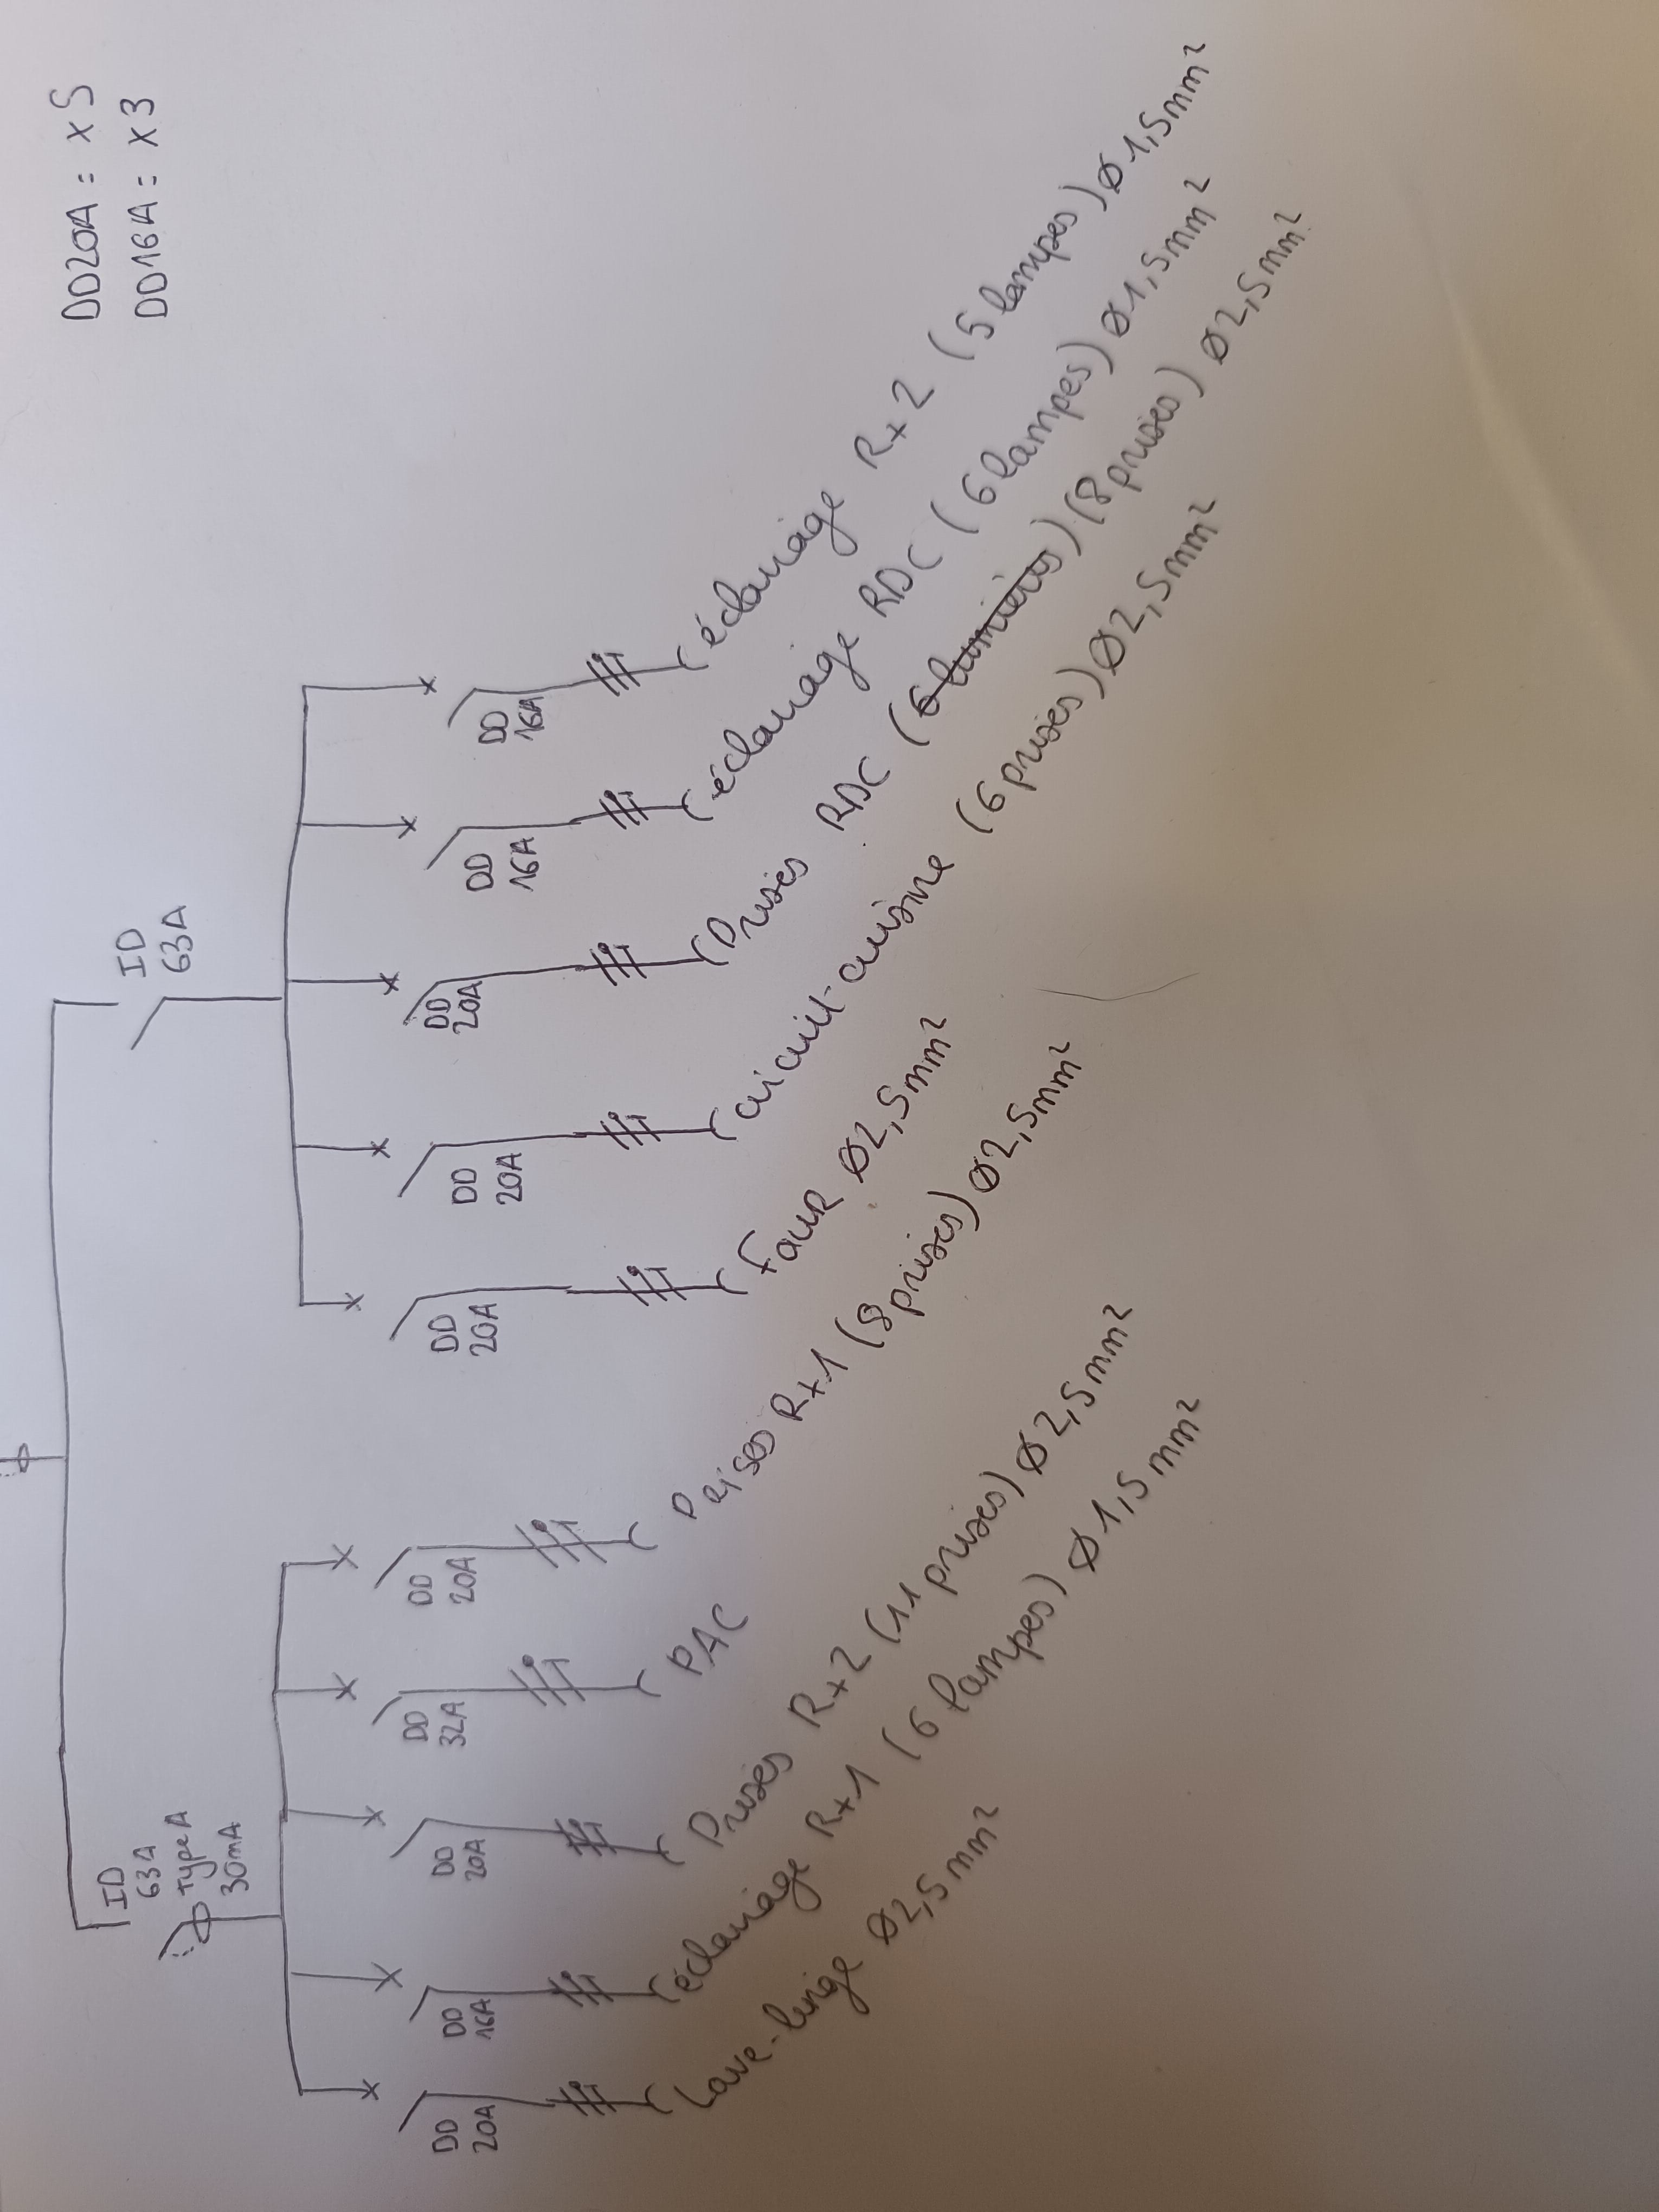 DD20A = x5
DD16A = x3
ID
63A
type A
30mA
ID
63A
DD
20A
DD
16A
DD
20A
DD
32A
DD
20A
DD
20A
DD
20A
DD
20A
DD
16A
DD
16A
Lave-linge Ø2,5mm²
éclairage R+1 (6 lampes) Ø1,5mm²
Prises R+2 (11 prises) Ø2,5mm²
PAC
Prises R+1 (8 prises) Ø2,5mm²
Four Ø2,5mm²
circuit-cuisine (6 prises) Ø2,5mm²
Prises RDC (6 lumières) (8 prises) Ø2,5mm²
éclairage RDC (6 lampes) Ø1,5mm²
éclairage R+2 (5 lampes) Ø1,5mm²